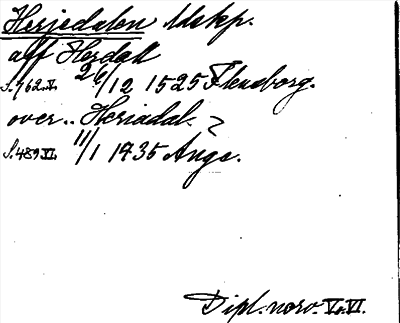 Herjedalen Udskp.
aff Herdall
S.762.V. 26/12 1525 Flensborg.
over.. Heriadal.
S.489.VI. 11/1 1435 Ange.
Dipl. norv. V. VI.